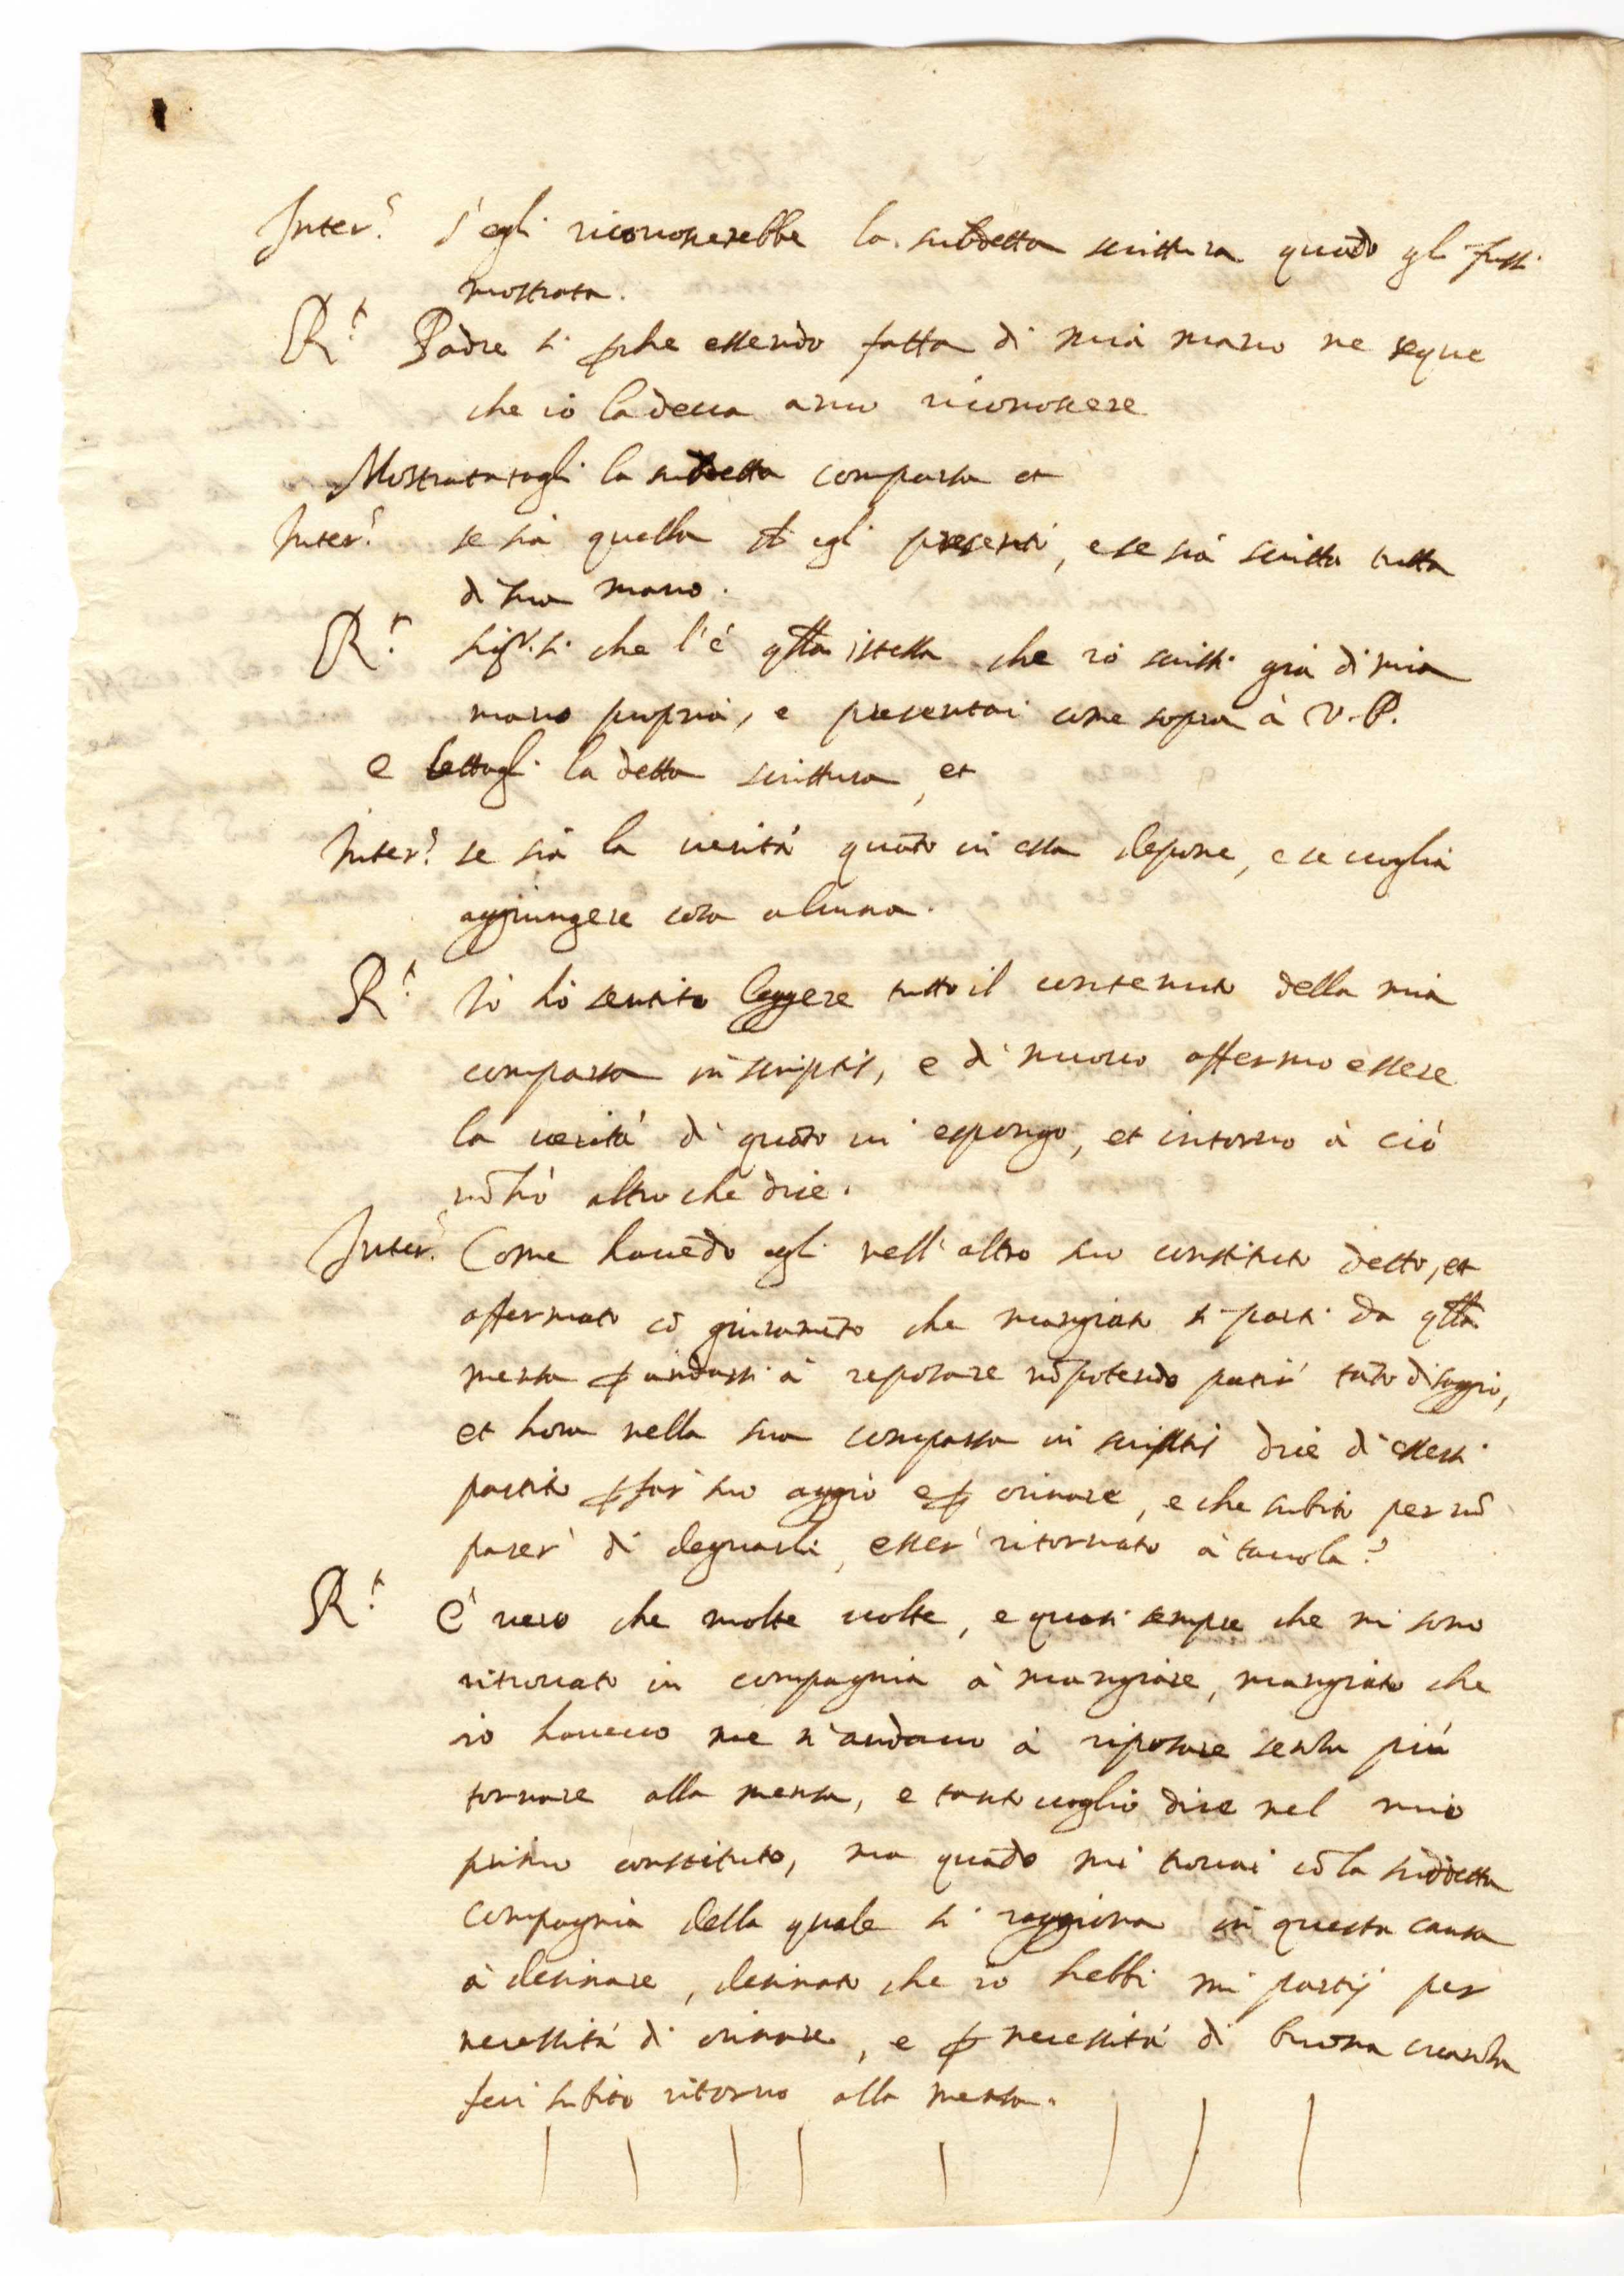 Inter.º s'egli riconoscerebbe la suddetta scrittura quādo gli fussi
mostrata.
R.t Padre si ꝑche essendo fatta di mia mano ne seque
che io la deva anco riconoscere
Mostratasegli la suddetta comparsa et
Inter.º se sia quella ch' egli presentò, e se sia scritta tutta
di sua mano.
R.t sigr. si che l'è qlla istessa che io scrissi già di mia
mano propria, e presentai come sopra à V. P.
e lettagli la detta scrittura, et
Inter.º se sia la verità quāto in essa depone, e se voglia
aggiungere cosa alcuna.
R.t Io hò sentito leggere tutto il contenuto della mia
comparsa in scriptis, e di nuovo affermo essere
la verità di quāto ivi espongo, et intorno à ciò
nō hò altro che dire.
Inter.º Come havēdo egli nell' altro suo constituto detto, et
affermato cō giuramēto che mangiato si partì da qlla
mensa ꝑ andarsi à reposare nō potendo patir tāto disaggio,
et hora nella sua comparsa in scriptis dice di essersi
partito ꝑ far suo aggio e ꝑ orinare, e che subito per nō
parer di degnarli, esser ritornato à tavola?
R.t È vero che molte volte, e quasi sempre che mi sono
ritrovato in compagnia à mangiare, mangiato che
io havevo me n'andavo à riposare senza più
tornare alla mensa, e tanto voglio dire nel mio
primo constituto, ma quādo mi trovai cō la suddetta
compagnia della quale si raggiona in questa causa
à desinare, desinato che io hebbi mi partij per
necessità di orinare, e ꝑ necessità di buona creanza
feci subito ritorno alla mensa.